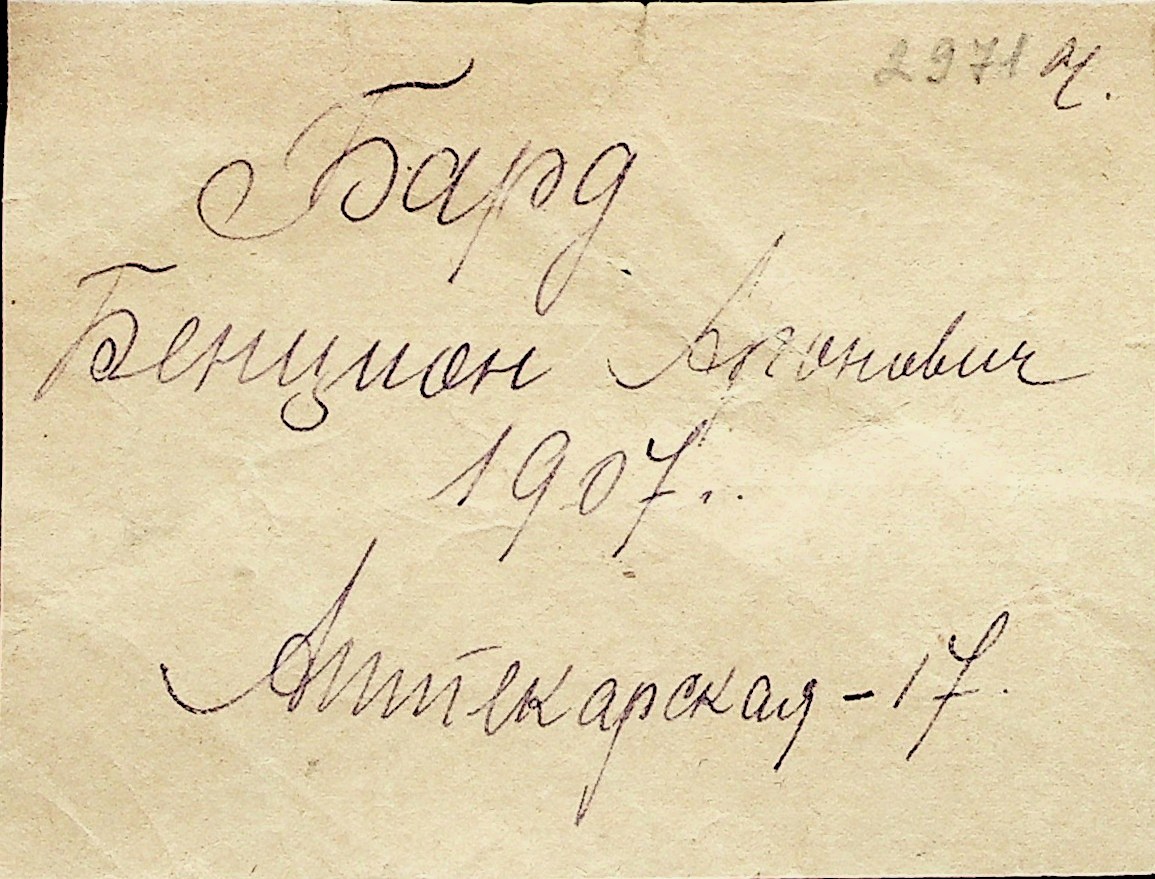 2971 ч.
Бард
Бенцион Аронович
1907.
Аптекарская - 17.